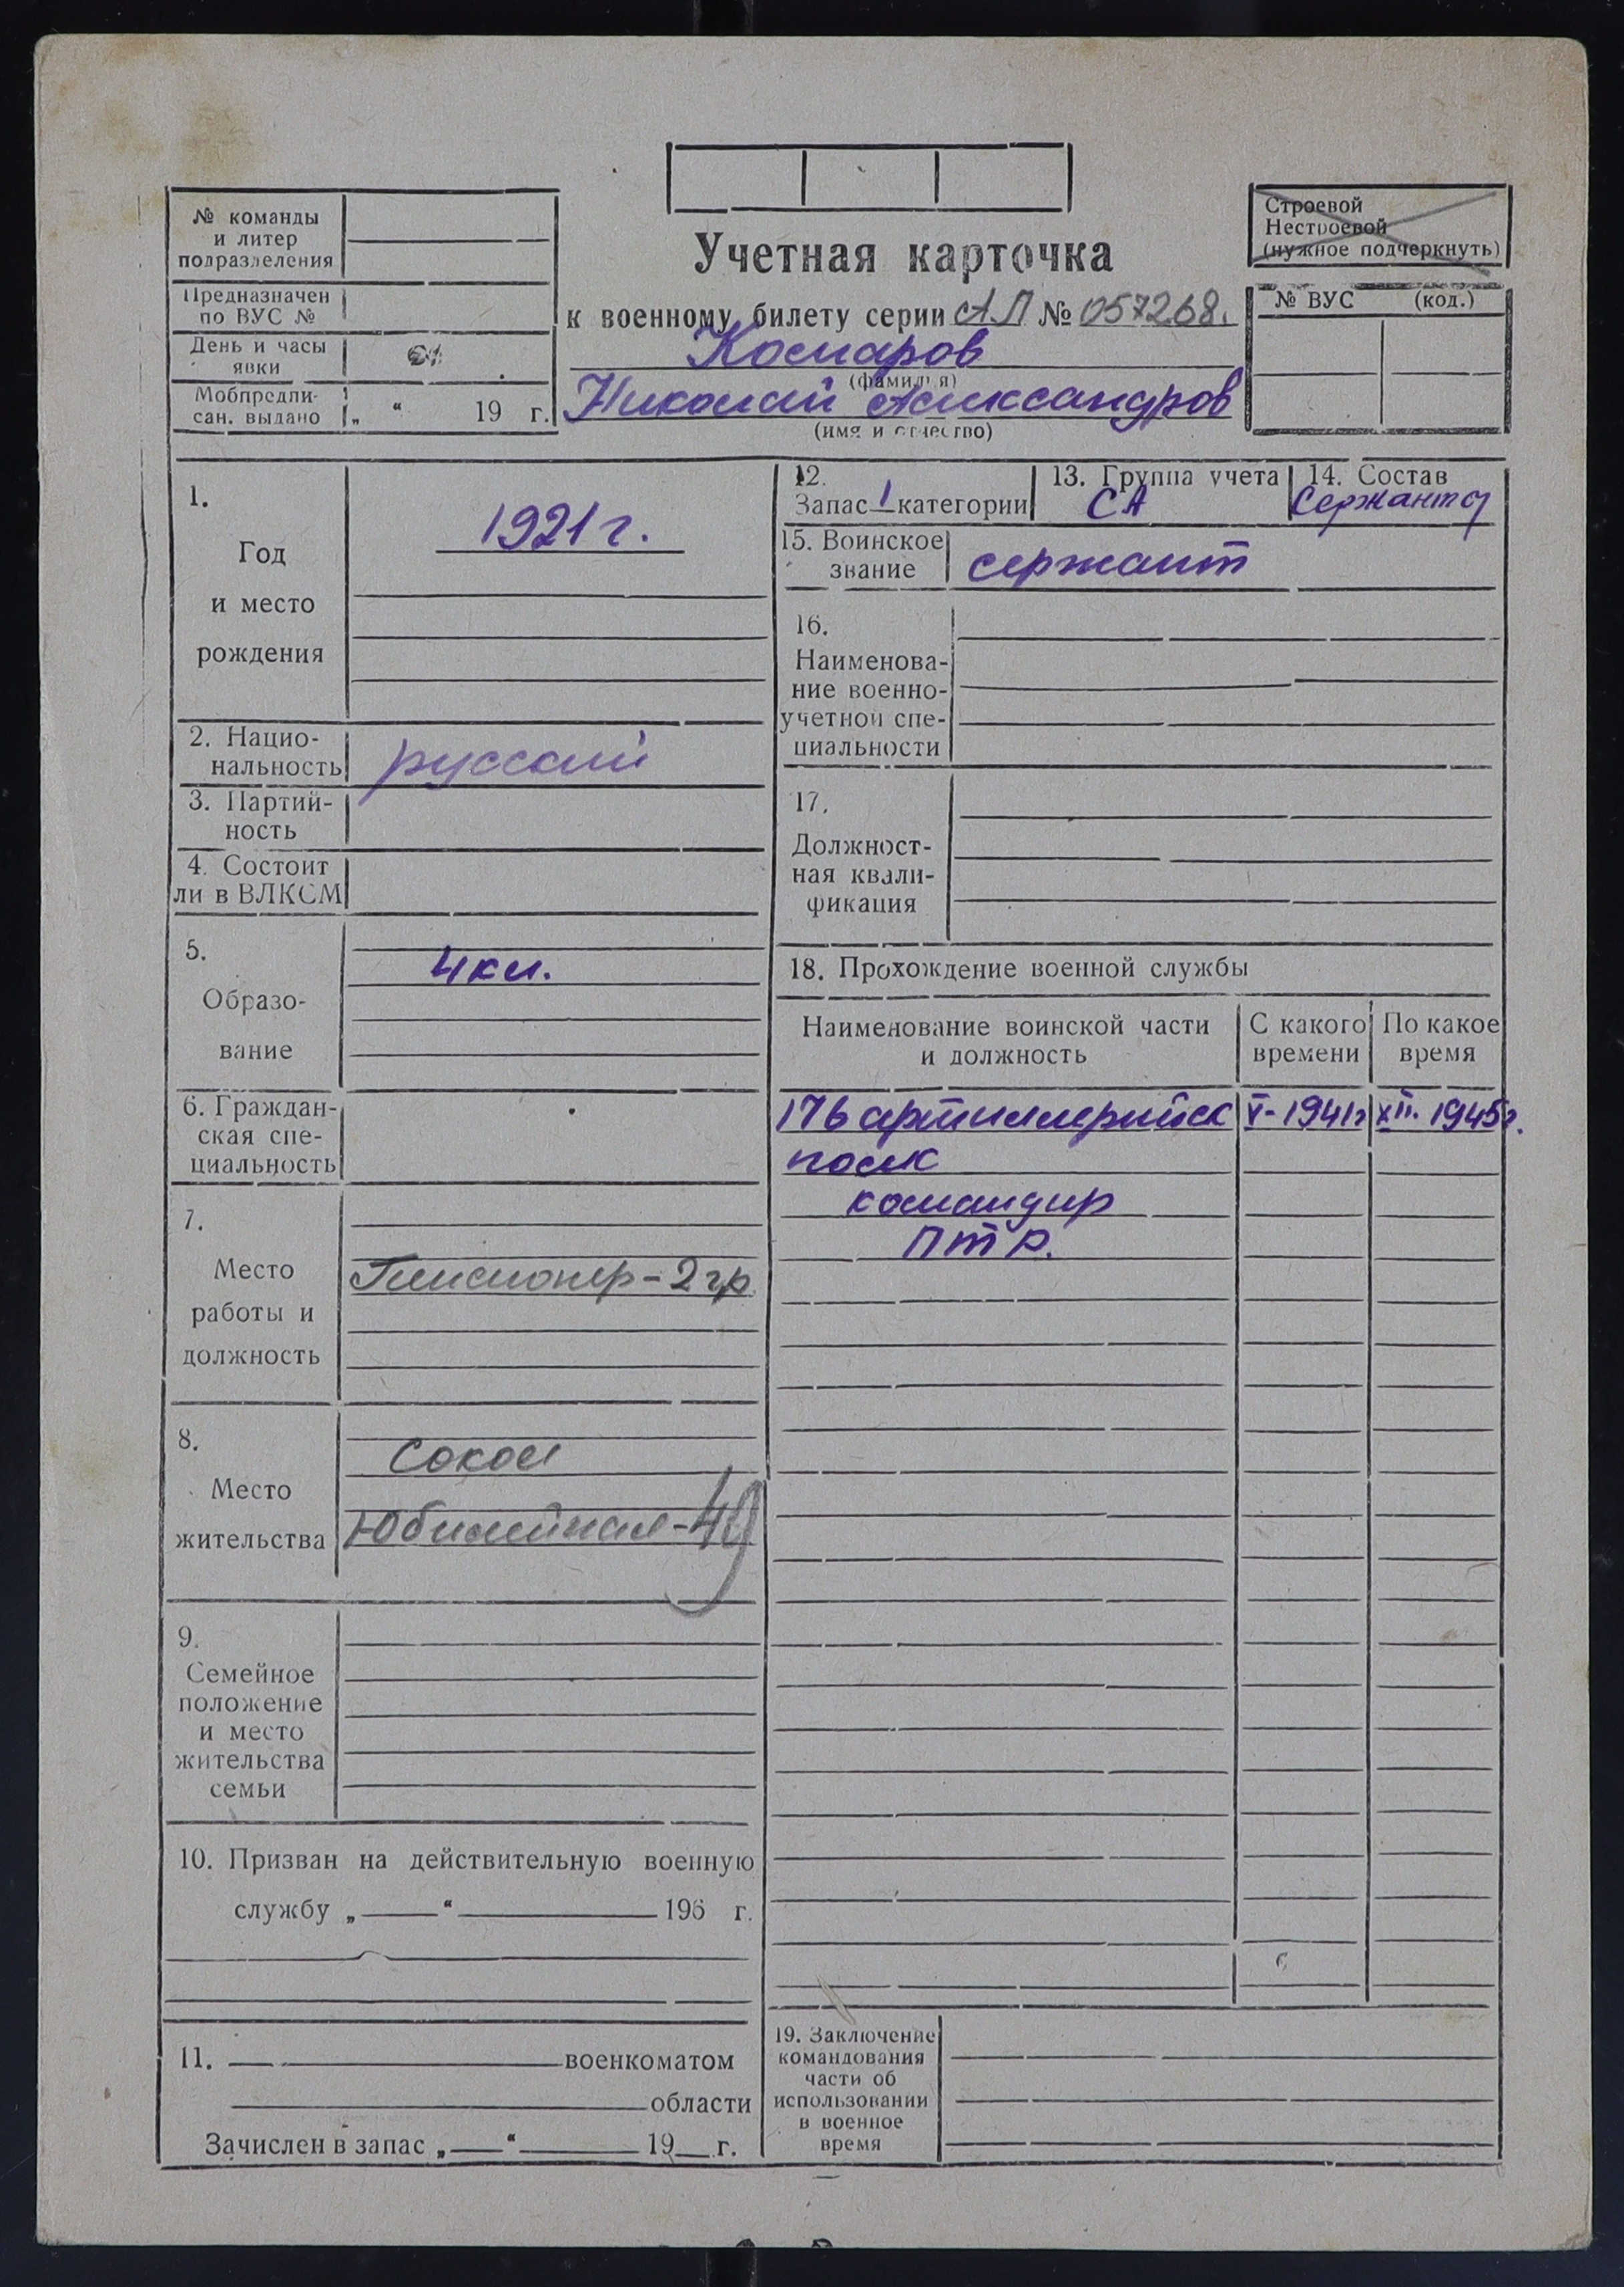 № команды
и литер
подразделения
Предназначен
по ВУС №
День и часы
явки
Мобпредпи-
сан. выдано „ “ 19 г.
Учетная карточка
к военному билету серии АП № 057268.
Комаров
(фамилия)
Николай Александров
(имя и отчество)
Строевой
Нестроевой
(нужное подчеркнуть)
№ ВУС (код.)
1.
Год
и место
рождения
1921 г.
2. Нацио-
нальность
русский
3. Партий-
ность
4. Состоит
ли в ВЛКСМ
5.
Образо-
вание
4 кл.
6. Граждан-
ская спе-
циальность
7.
Место
работы и
должность
Пенсионер - 2 гр.
8.
Место
жительства
Сокол
Юбилейная - 49
9.
Семейное
положение
и место
жительства
семьи
10. Призван на действительную военную
службу „ “ 196 г.
11. военкоматом
области
Зачислен в запас „ “ 19 г.
12.
Запас 1 категории
13. Группа учета
СА
14. Состав
Сержанты
15. Воинское
звание
сержант
16.
Наименова-
ние военно-
учетной спе-
циальности
17.
Должност-
ная квали-
фикация
18. Прохождение военной службы
Наименование воинской части
и должность
С какого
времени
По какое
время
176 артиллерийск V - 1941 г XII. 1945 г.
полк
командир
ПТР.
19. Заключение
командования
части об
использовании
в военное
время